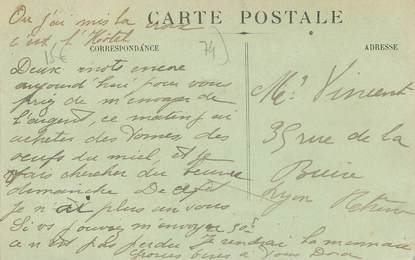 Où j'ai mis la croix
c'est l'Hôtel
CARTE POSTALE
CORRESPONDANCE
15€
74)
ADRESSE
Deux mots encore
aujourd'hui pour vous
prier de m'envoyer de
l'argent, ce matin j'ai
acheter des Tomes, des
oeufs du miel, et
vais chercher du beurre
dimanche
Je n'ai plus un sous
Si vs pouvez m'envoyer 50f
ce n'est pas perdu Je rendrai la monnaie
à vous Dora
Mr Vincent
35 rue de la
Buire
Lyon Rhône